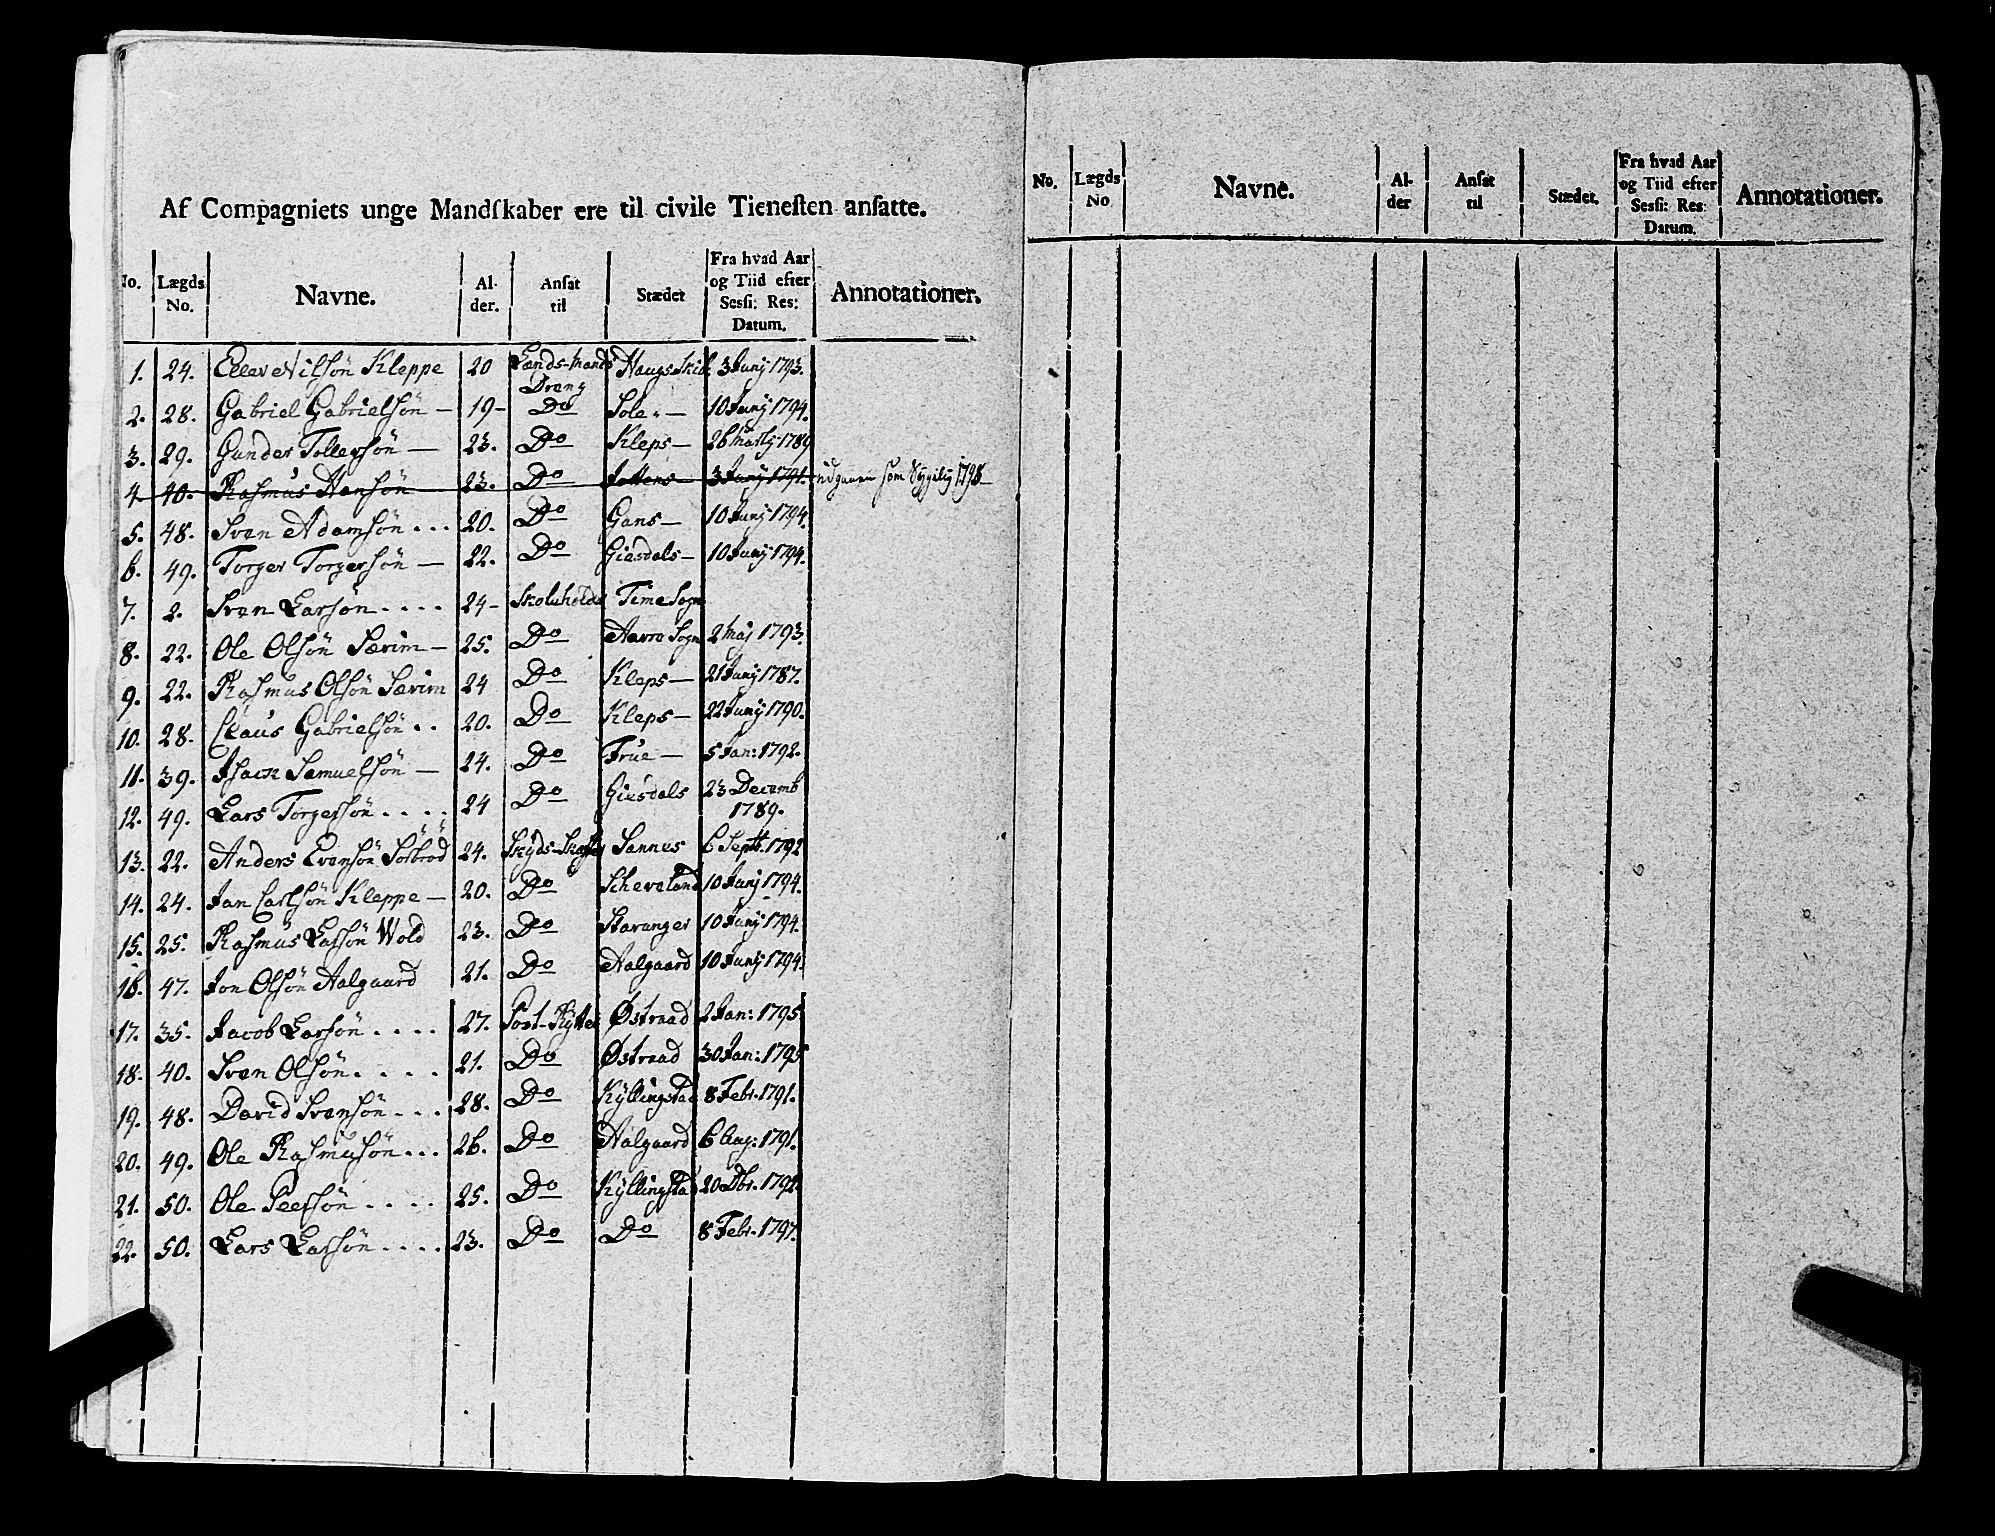 Af Compagniets unge Mandſkaber ere til civile Tieneſten anſatte.
No. Lægds No. Navne. Al-der. Anſat til Stædet Fra hvad Aar og Tiid efter Sesſi: Res: Datum. Annotationer.
1. 24. Ellev Nilsön Kleppe 20 Lænds-Mands Dreng Haugs Skib 3 Junj 1793.
2. 28. Gabriel Gabrielsön — 19 – Do Sole. — 10 Junj 1794.
3. 29. Gunder Tollersön — 23. Do Kleps — 26 Martj 1789
4 40. Rasmus Hansön 23. Do 3 Junj 1791. udgaaen som Sygelig 1795
5. 48. Sven Adamsön . . . 20. Do Gans — 10 Junj 1794.
6. 49. Torger Torgersön — 22. Do Giesdals — 10 Junj 1794.
7. 2. Sven Larsön . . . . 24 – Skoleholder Time Sogn
8. 22. Ole Olsön Særim — 25. Do Sogn 2 Maj 1793.
9. 22. Rasmus Olsön Særim 24 Do Kleps — 21 Junj 1787.
10. 28. Claus Gabrielsön . . 20. Do Kleps — 22 Junj 1790.
11. 39. Isack Samuelsön — 24. Do Frue — 5 Jan: 1792.
12. 49. Lars Torgersön . . . . 24 Do Giesdals 23 Decemb 1789.
13. 22. Anders Evensön Sörbröd 24. Skyds-Skaffer Sannes 6 Septb. 1792
14. 24. Jan Carlsön Kleppe — 20. Do Scheveland 10 Junj 1794.
15. 25. Rasmus Larsön Wold 23. Do Stavanger 10 Junj 1794.
16. 47. Jon Olsön Aalgaard 21. Do Aalgaard 10 Junj 1794.
17. 35. Jacob Larsön . . . . 27. Post-Rytter Østraad 2 Jan: 1795
18. 40. Sven Olsön . . . . 21. Do Østraad 30 Jan: 1795
19. 48. David Svensön . . . 28. Do Kyllingstad 8 Febr. 1791.
20. 49. Ole Rasmusön . . . 26. Do Aalgaard 6 Aug: 1791.
21. 50. Ole Peersön . . . . 25. Do Kyllingstad 20 Dbr. 1792.
22. 50. Lars Larsön . . . . 23. Do Do 8 Febr. 1791.
No. Lægds No Navne. Al-der Anſat til Stædet. Fra hvad Aar og Tiid efter Sesſi: Res: Datum. Annotationer.